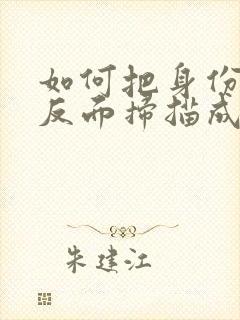 如何把身份
反而扫描成
朱建江